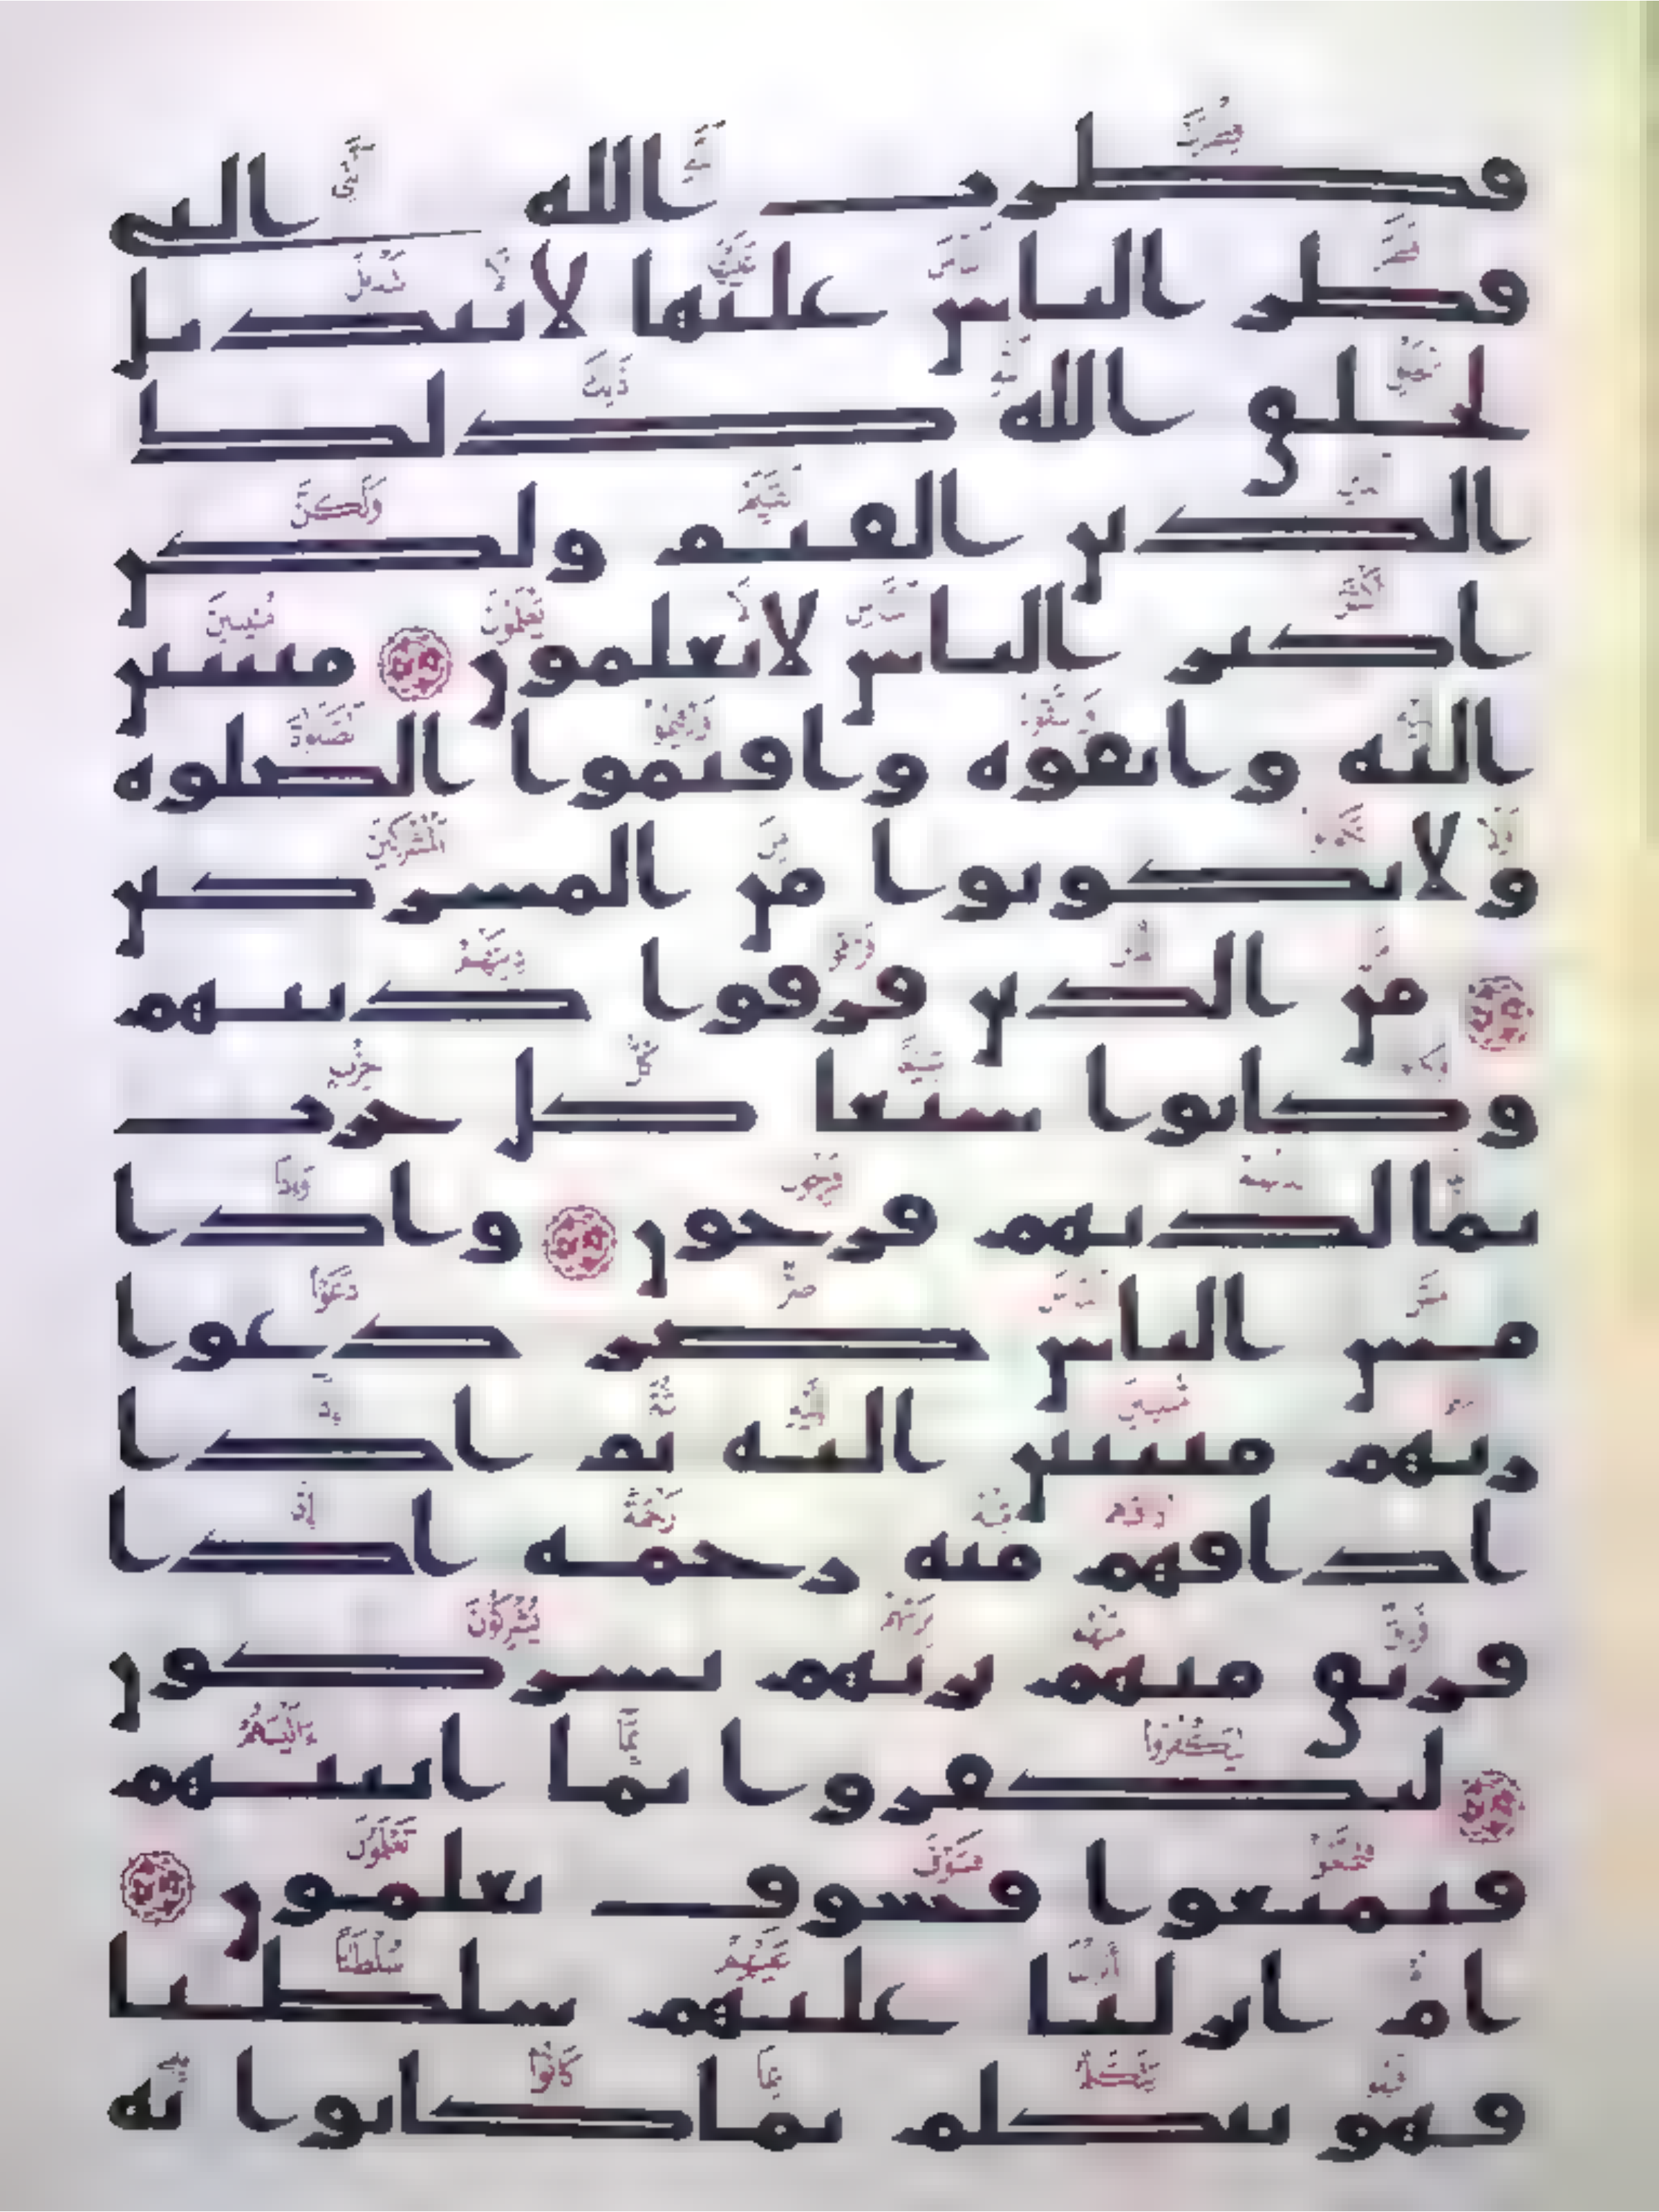 فطرت الله التي
فطر الناس عليها لا تبديل
لخلق الله ذلك
الدين القيم ولكن
اكثر الناس لا يعلمون منيبين
اليه واتقوه واقيموا الصلوة
ولا تكونوا من المشركين
من الذين فرقوا دينهم
وكانوا شيعا كل حزب
بما لديهم فرحون واذا
مس الناس ضر دعوا
ربهم منيبين اليه ثم اذا
اذاقهم منه رحمة اذا
فريق منهم بربهم يشركون
ليكفروا بما اتينهم
فتمتعوا فسوف تعلمون
ام انزلنا عليهم سلطنا
فهو يتكلم بما كانوا به